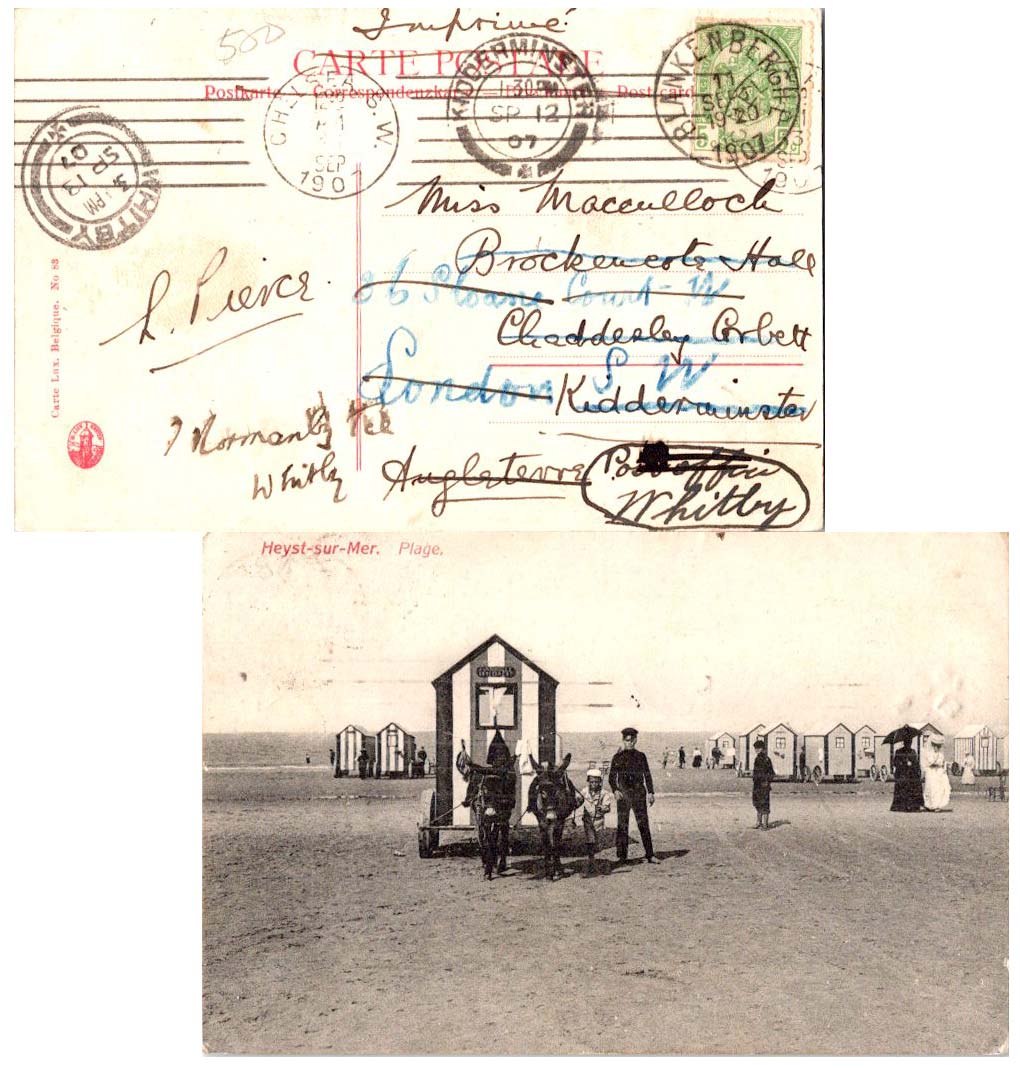 500
Imprimé
CARTE POSTALE
Postkarte - Correspondenzkarte Post card
CHELSEA S.W.
SEP
190
KIDDERMINSTER
1.30 PM
SP 12
07
BLANKENBERGHE
11
SEPT
19-20
1907
5
5
WHITBY
PM
SP 13
07
Miss Macculloch
Brockencote Hall
36 Sloane Court W
Chaddesley Corbett
London S W
Kidderminster
Angleterre
Post office
Whitby
L. Pierce.
7 Normanby Tce
Whitby
Carte Lux. Belgique. No 83
Heyst-sur-Mer. Plage.